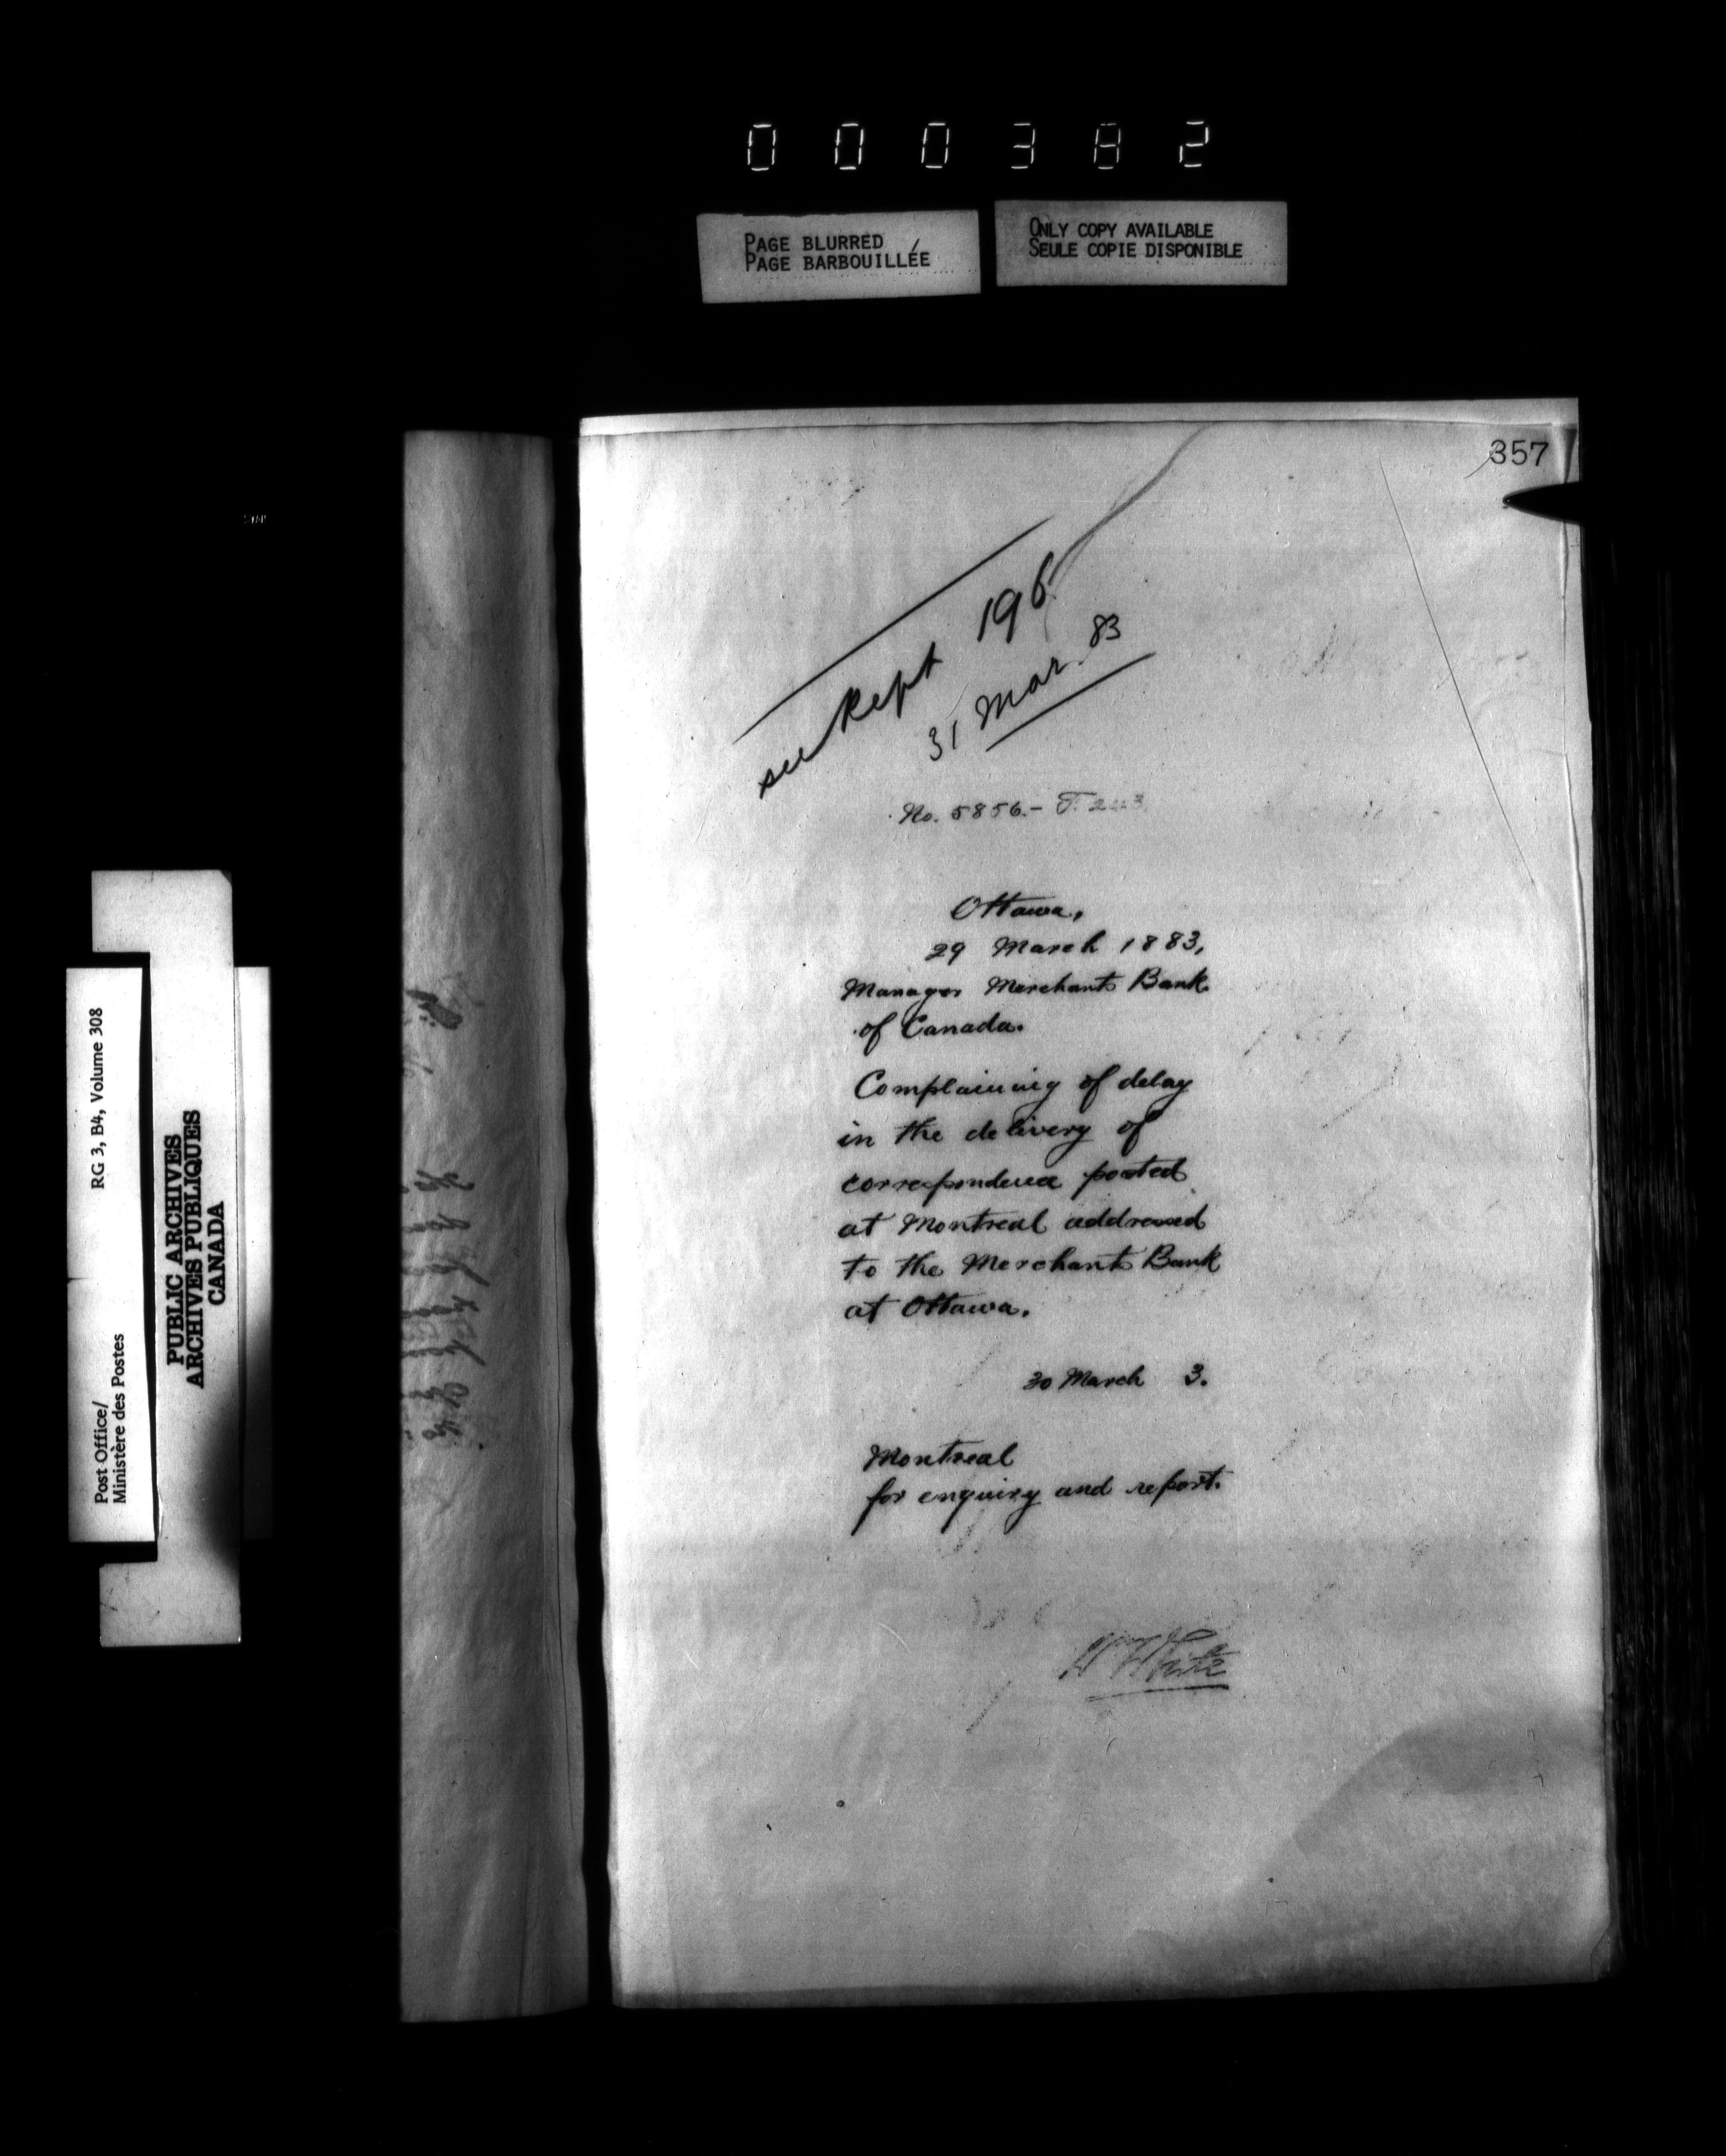 000382
PAGE BLURRED
PAGE BARBOUILLÉE
ONLY COPY AVAILABLE
SEULE COPIE DISPONIBLE
357
see Rept 196
31 Mar. 83
No. 5856.- T. 243
Ottawa,
29 March 1883,
Manager Merchants Bank
of Canada.
Complaining of delay
in the delivery of
correspondence posted
at Montreal addressed
to the Merchants Bank
at Ottawa.
30 March 3.
Montreal
for enquiry and report.
W White
RG 3, B4, Volume 308
Post Office/
Ministère des Postes
PUBLIC ARCHIVES
ARCHIVES PUBLIQUES
CANADA